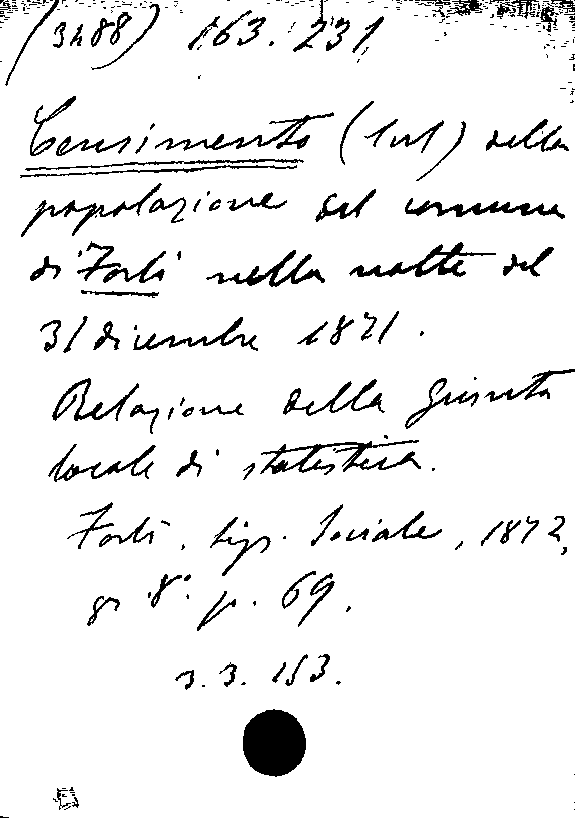 (3488) 163.231
Censimento (Sul) della
popolazione del comune
di Forlì nella notte del
31 dicembre 1871.
Relazione della Giunta
locale di statistica.
Forlì, tip. Sociale, 1872,
gr 8° p. 69.
3.3.153.